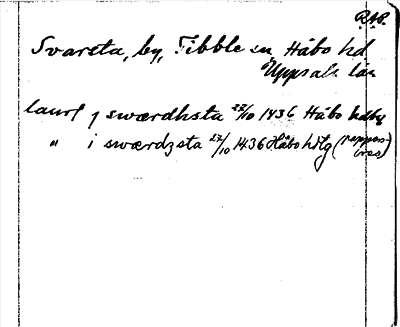 R.A.P.
Svarsta, by, Tibble sn Håbo hd
Uppsala län
laurj j swærdhsta 27/10 1436 Håbo hdby
" i swærdzsta 27/10 1436 Håbo hdtg (pappers
brev)